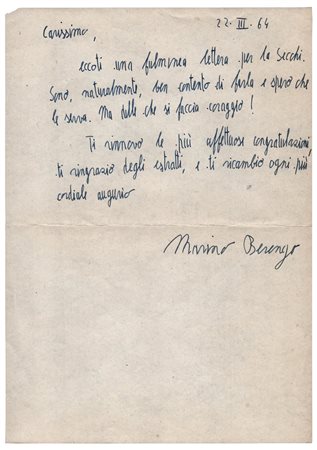 22. III. 64
Carissimo,
eccoti una fulminea lettera per la Secchi.
Sono, naturalmente, ben contento di farla e spero che
le serva. Ma dille che si faccia coraggio!
Ti rinnovo le più affettuose congratulazioni,
ti ringrazio degli estratti, e ti ricambio ogni più
cordiale augurio
Marino Berengo